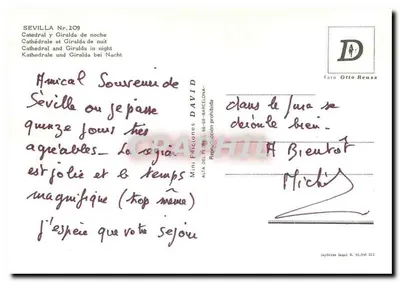 SEVILLA Nr. 209
Catedral y Giralda de noche
Cathédrale et Giralda de nuit
Cathedral and Giralda in night
Kathedrale und Giralda bei Nacht
Amical Souvenir de
Séville ou je passe
quinze jours très
agréables - La région
est jolie et le temps
magnifique (trop même)
j'espère que votre sejour
Mini Ediciones DAVID
BARCELONA
Reproducción prohibida
D
Foto Otto Reuss
dans le Jura se
déroule bien.
A Bientôt
Michel
Depósito Legal B.